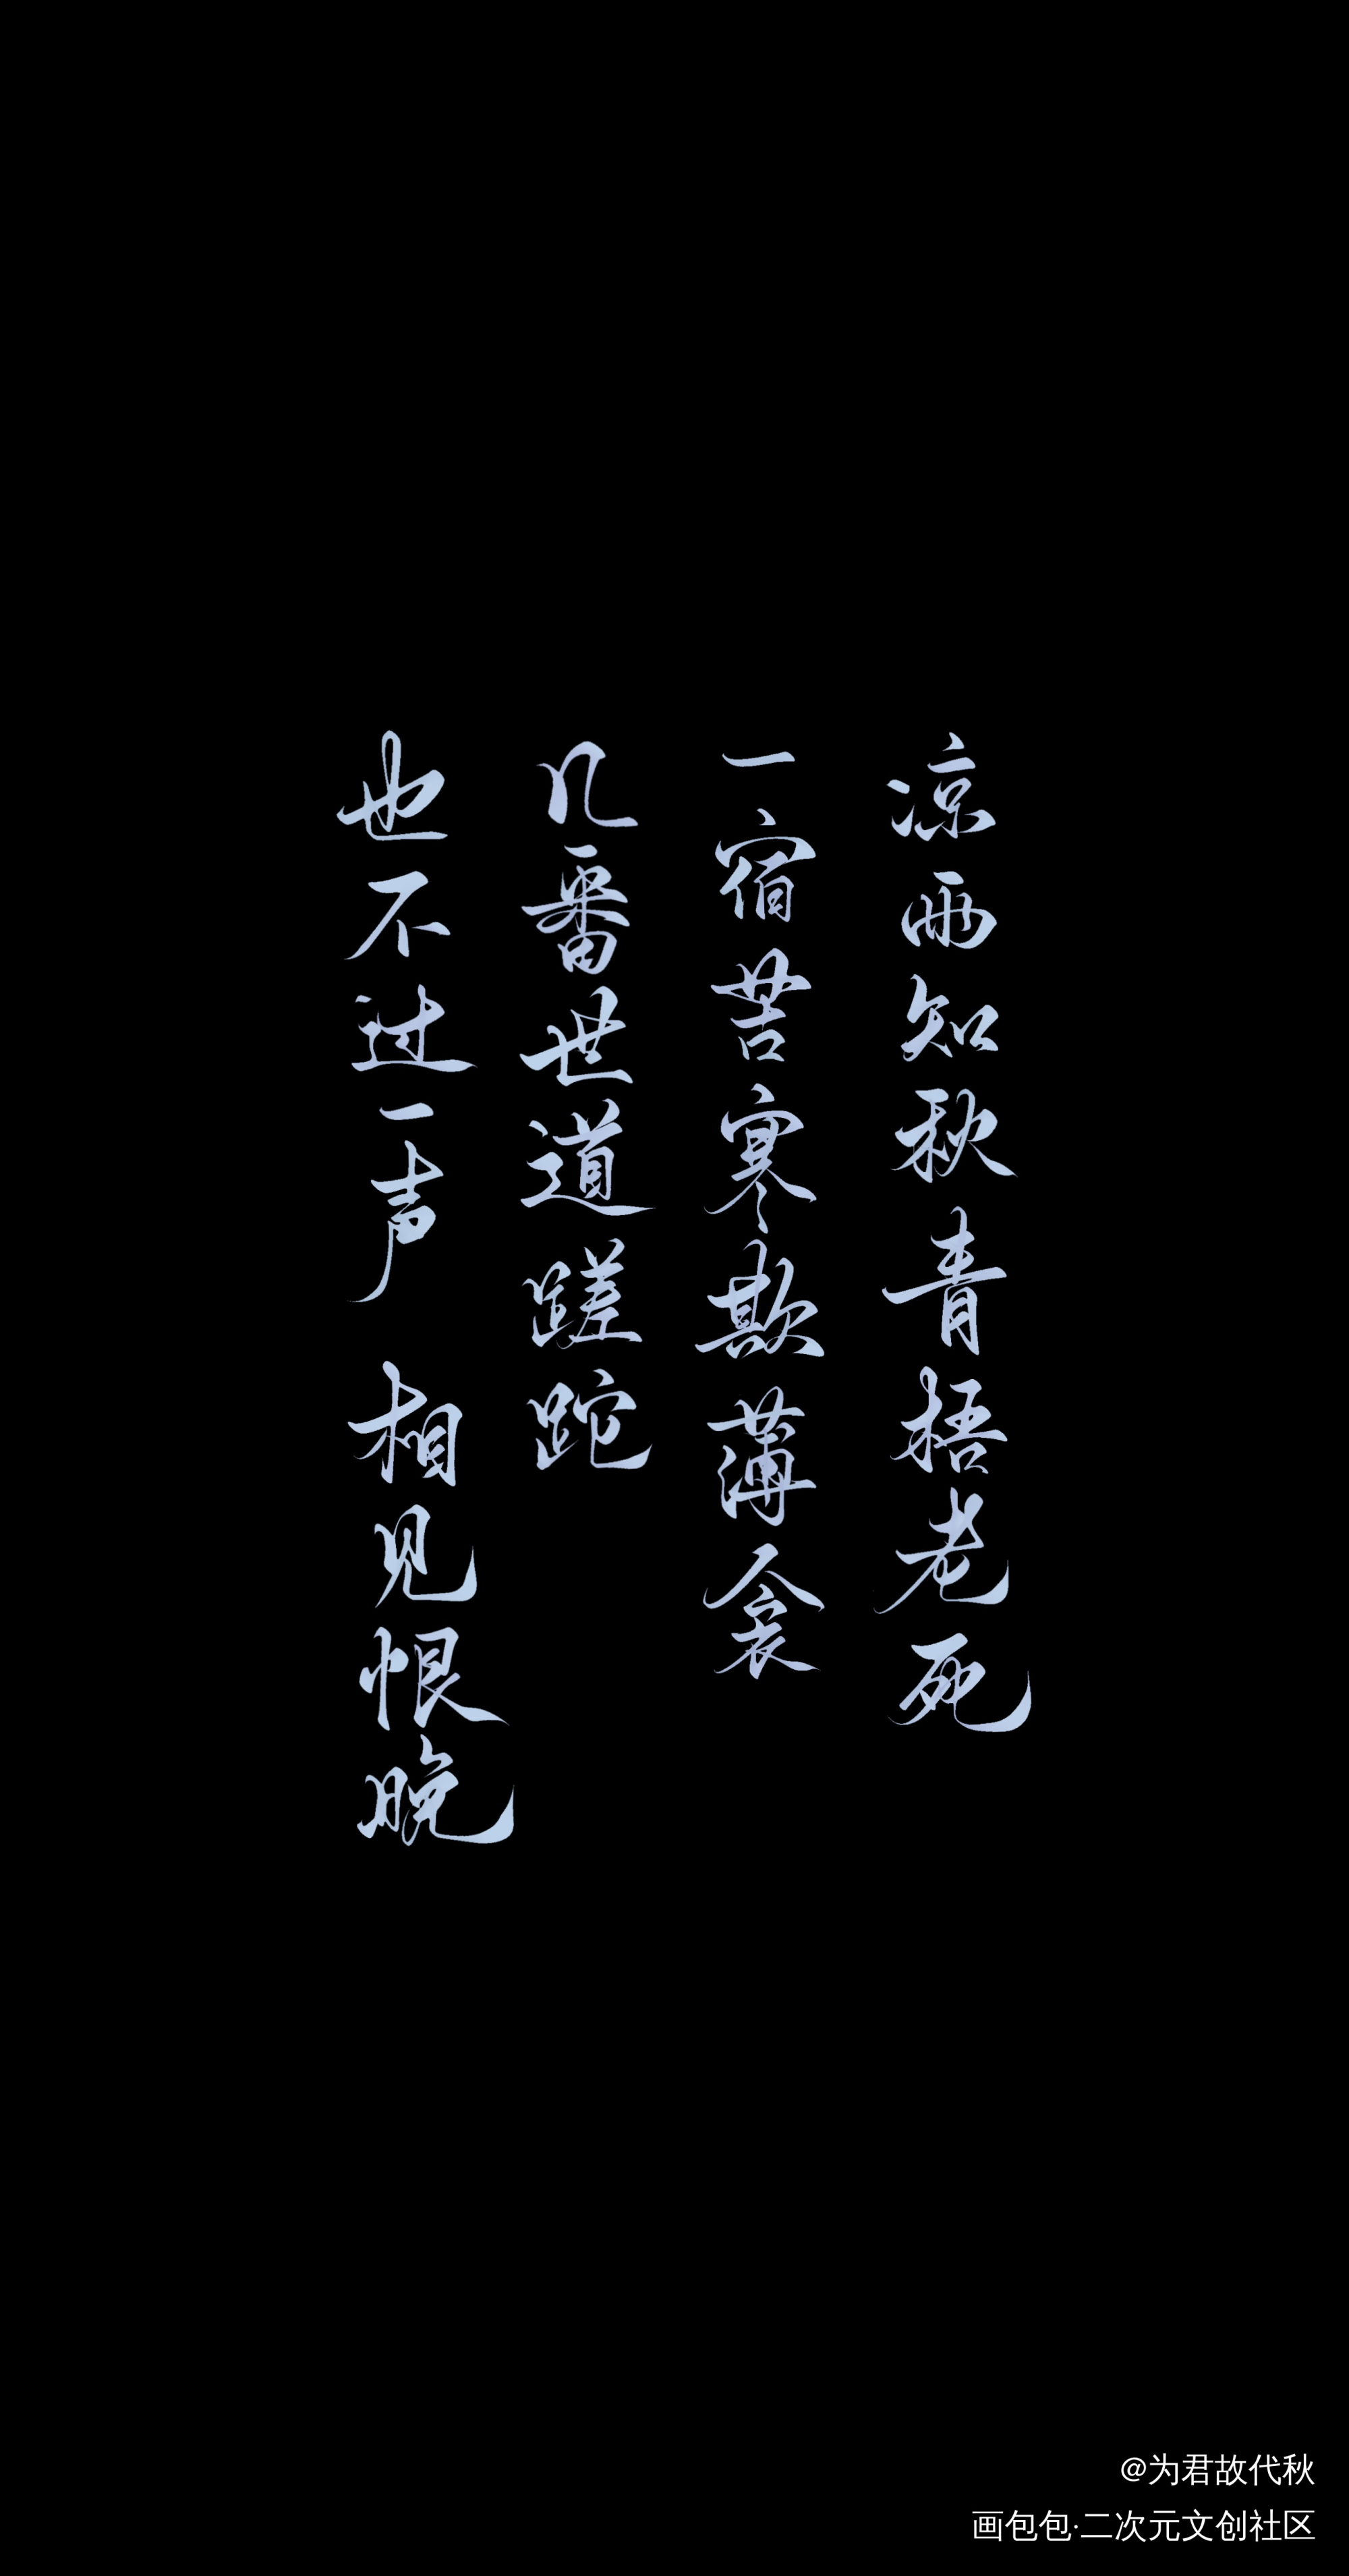 凉雨知秋青梧老死
一宿苦寒欺薄衾
几番世道蹉跎
也不过一声 相见恨晚
@为君故代秋
画包包·二次元文创社区